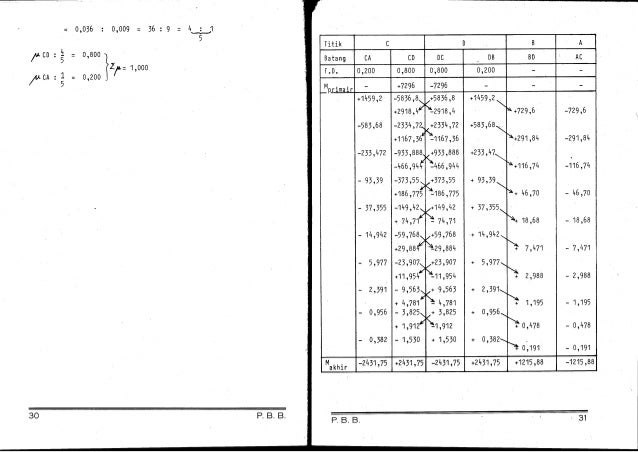 = 0,036 : 0,009 = 36 : 9 = 4 : 1
5
μ CD : 4/5 = 0,800
Σμ = 1,000
μ CA : 1/5 = 0,200
30 P. B. B.
Titik C D B A
Batang CA CD DC DB BD AC
F.D. 0,200 0,800 0,800 0,200 - -
M primair - +7296 -7296 - - -
+1459,2 -5836,8 +5836,8 +1459,2
+2918,4 -2918,4 +729,6 -729,6
-583,68 -2334,72 +2334,72 +583,68
+1167,36 -1167,36 +291,84 -291,84
-233,472 -933,888 +933,888 +233,47
-466,944 +466,944 +116,74 -116,74
- 93,39 -373,55 +373,55 + 93,39
+186,775 -186,775 + 46,70 - 46,70
- 37,355 -149,42 +149,42 + 37,355
+ 74,71 - 74,71 + 18,68 - 18,68
- 14,942 -59,768 +59,768 + 14,942
+29,884 -29,884 + 7,471 - 7,471
- 5,977 -23,907 +23,907 + 5,977
+11,954 -11,954 + 2,988 - 2,988
- 2,391 - 9,563 + 9,563 + 2,391
+ 4,781 - 4,781 + 1,195 - 1,195
- 0,956 - 3,825 + 3,825 + 0,956
+ 1,912 -1,912 + 0,478 - 0,478
- 0,382 - 1,530 + 1,530 + 0,382
+ 0,191 - 0,191
M akhir -2431,75 +2431,75 -2431,75 +2431,75 +1215,88 -1215,88
P. B. B. 31